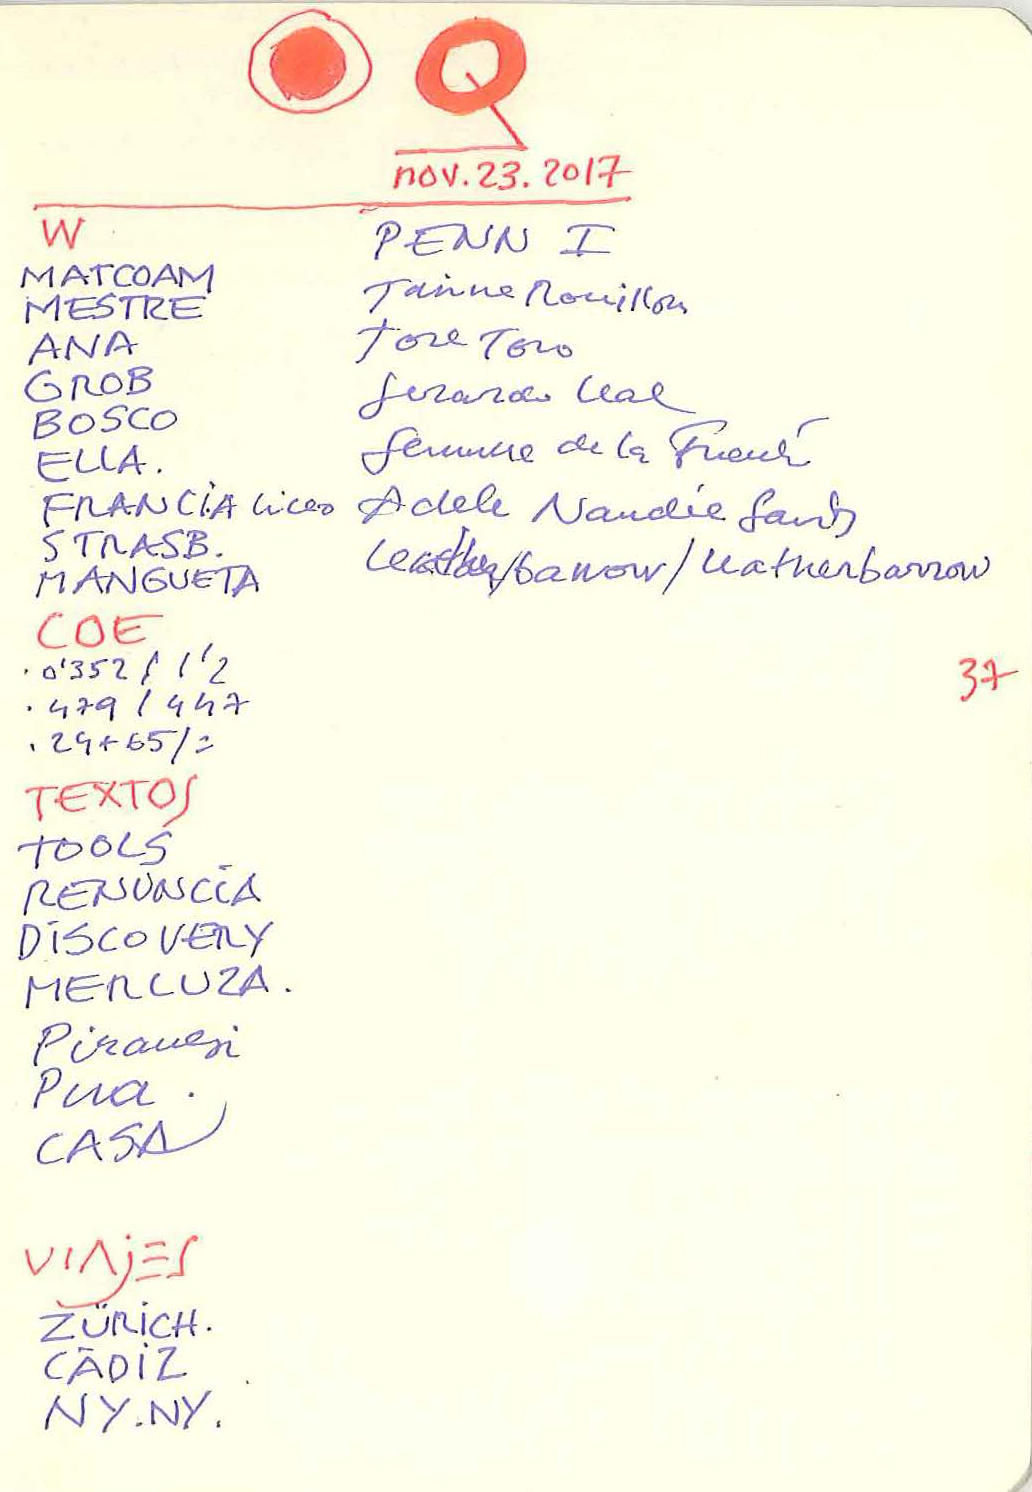 nov.23.2017
W
MATCOAM
MESTRE
ANA
GROB
BOSCO
ELLA.
FRANCIA Liceo
STRASB.
MANGUETA
PENN I
Rouillon
Jose Toro
Gerardo Leal
de la Fuente
Adele Naudé Santos
/barrow/Leatherbarrow
COE
.0'352 / 1'2
.479 / 447
.24+65/=
37
TEXTOS
TOOLS
RENUNCIA
DISCOVERY
MERLUZA.
Piranesi
Pura.
CASA
VIAJES
ZÜRICH.
CÁDIZ
NY.NY.